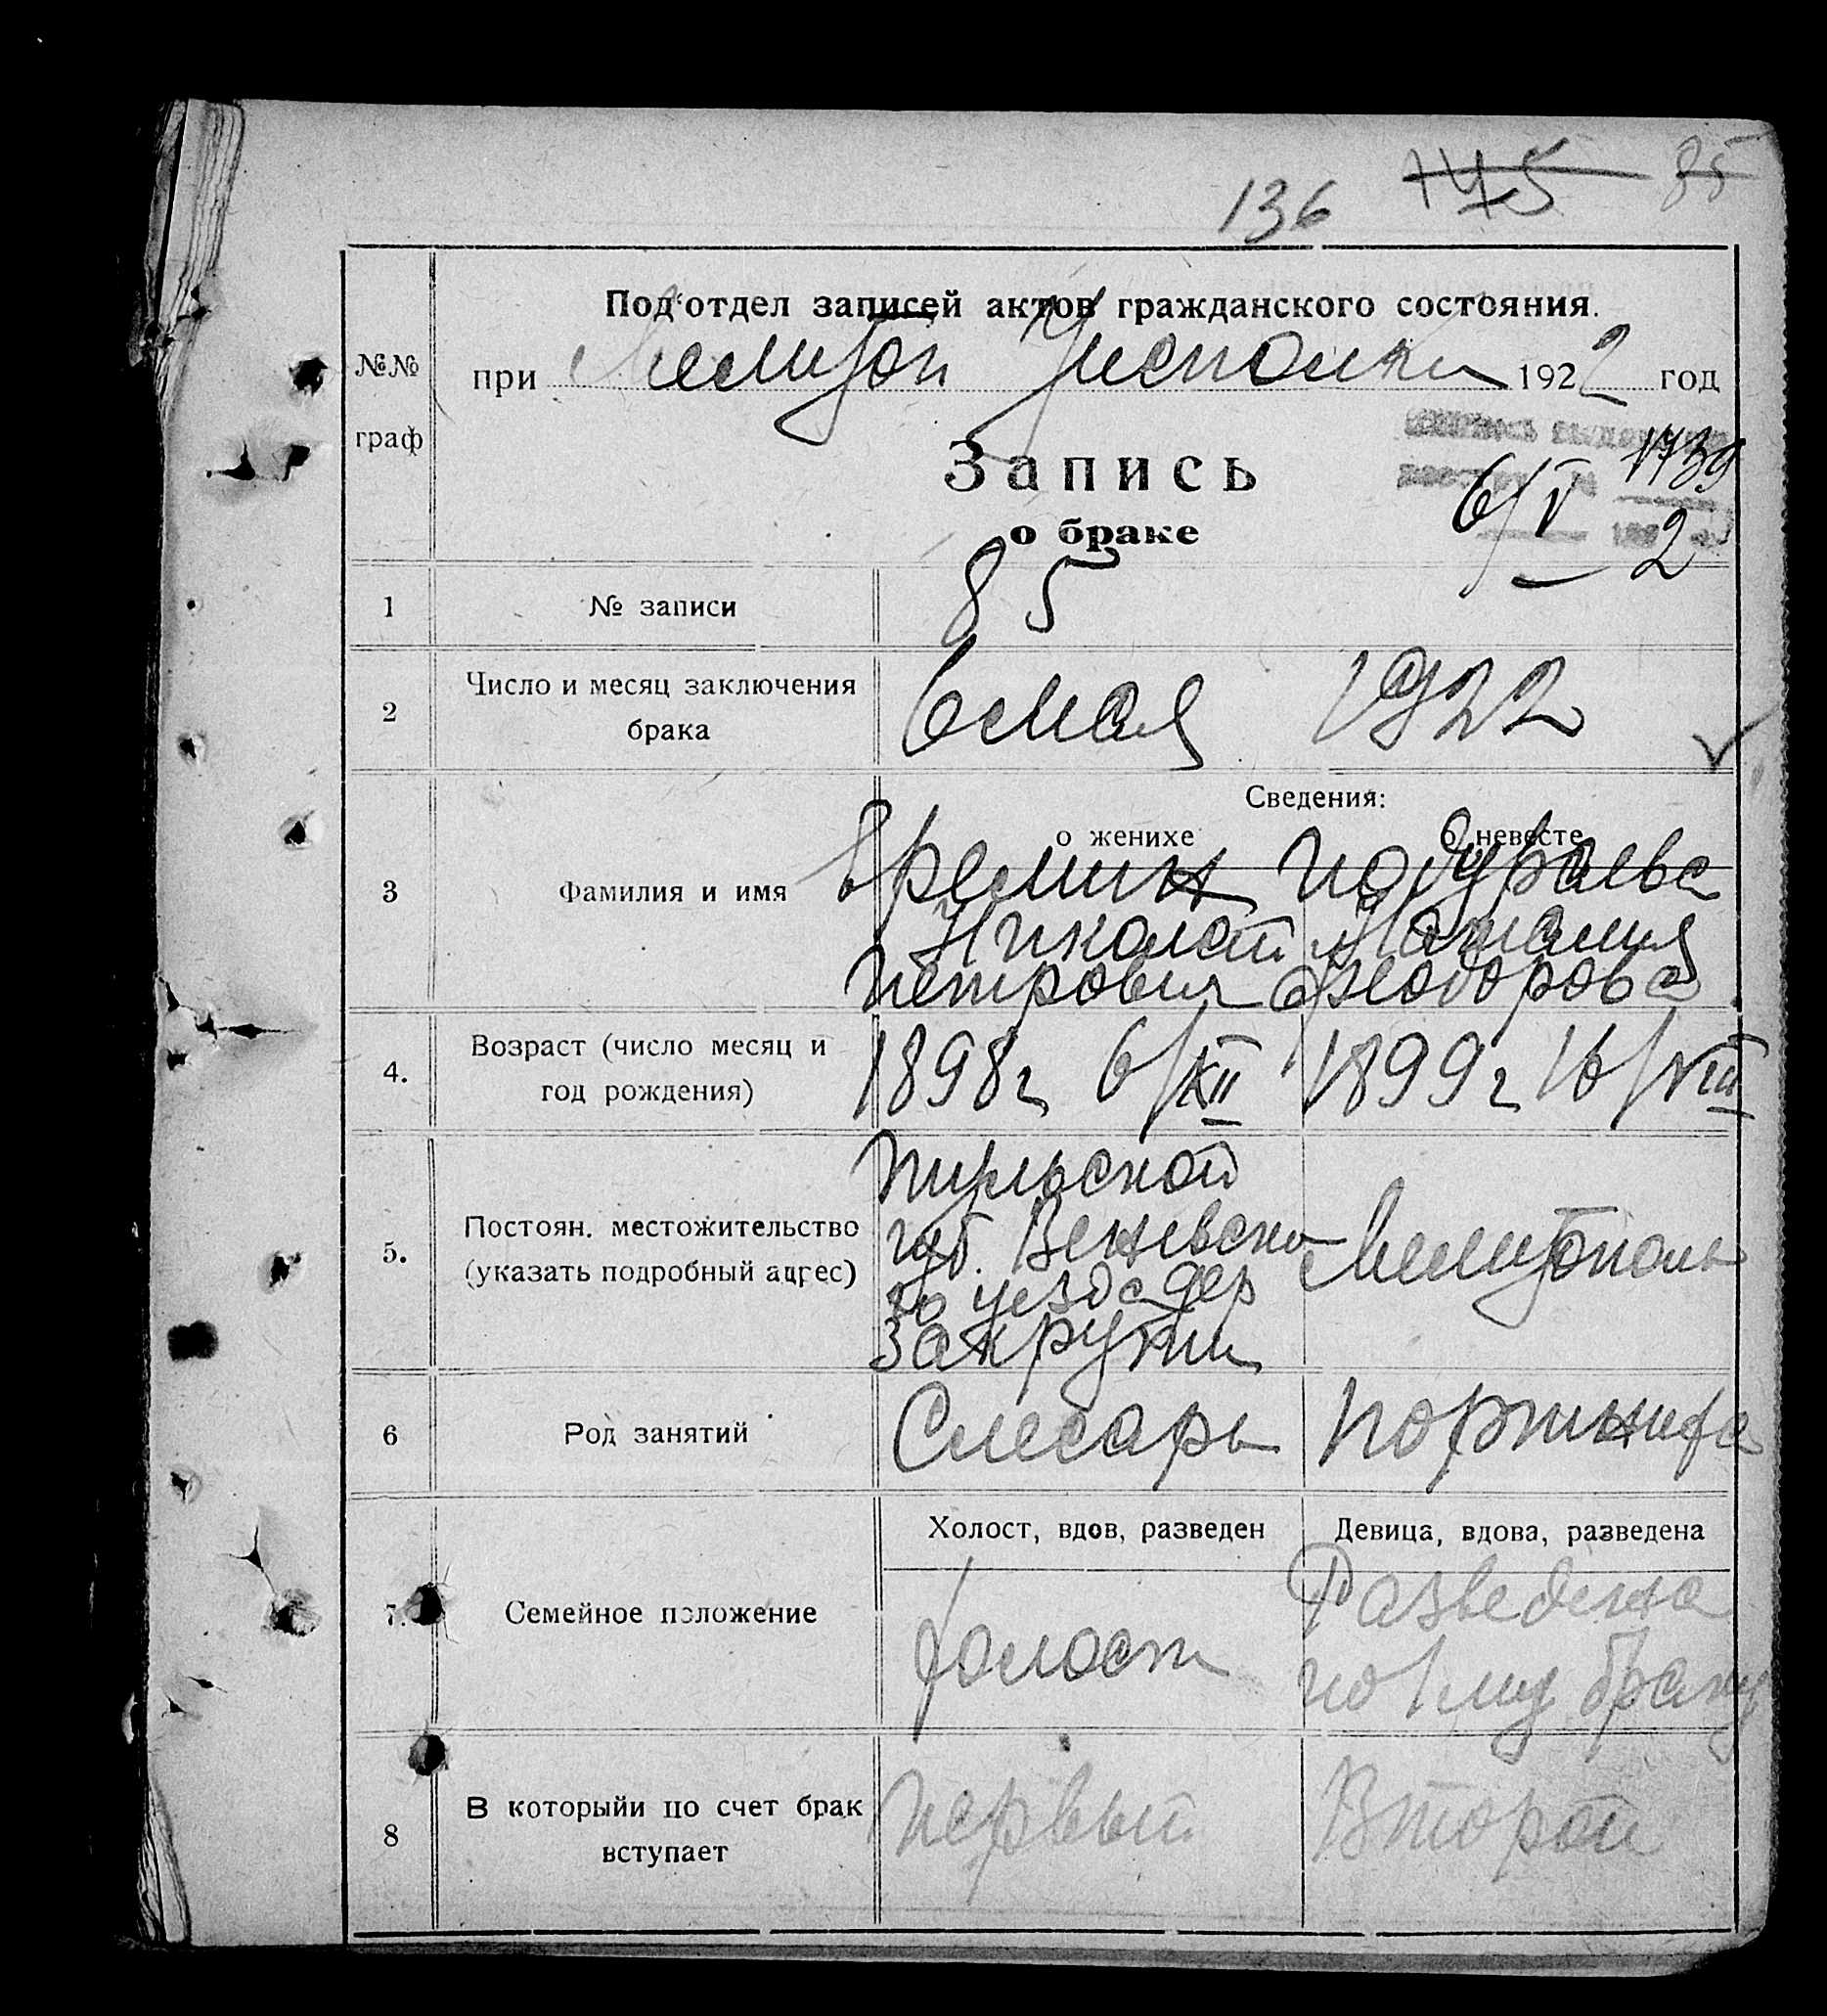 136 145 85
Под'отдел записей актов гражданского состояния.
№№
граф
при Мелитоп Уисполки 1922 год
1739
Запись
6/V 2
о браке
1 № записи 85
2 Число и месяц заключения
брака
6 мая 1922
Сведения:
о женихе о невесте
3 Фамилия и имя
Еремин
Николай Наталия
Петрович Феодорова
4. Возраст (число месяц и
год рождения)
1898 г 6/XII 1899 г 16/VIII
5. Постоян. местожительство
(указать подробный адрес)
Тульской
губ. Веневско
го уезда дер
Закрутки
Мелитополь
6 Род занятий Слесарь Портниха
Холост, вдов, разведен Девица, вдова, разведена
7. Семейное положение
холост
Разведена
по 1му браку
8 В которыйи по счет брак
вступает
Первый Второй